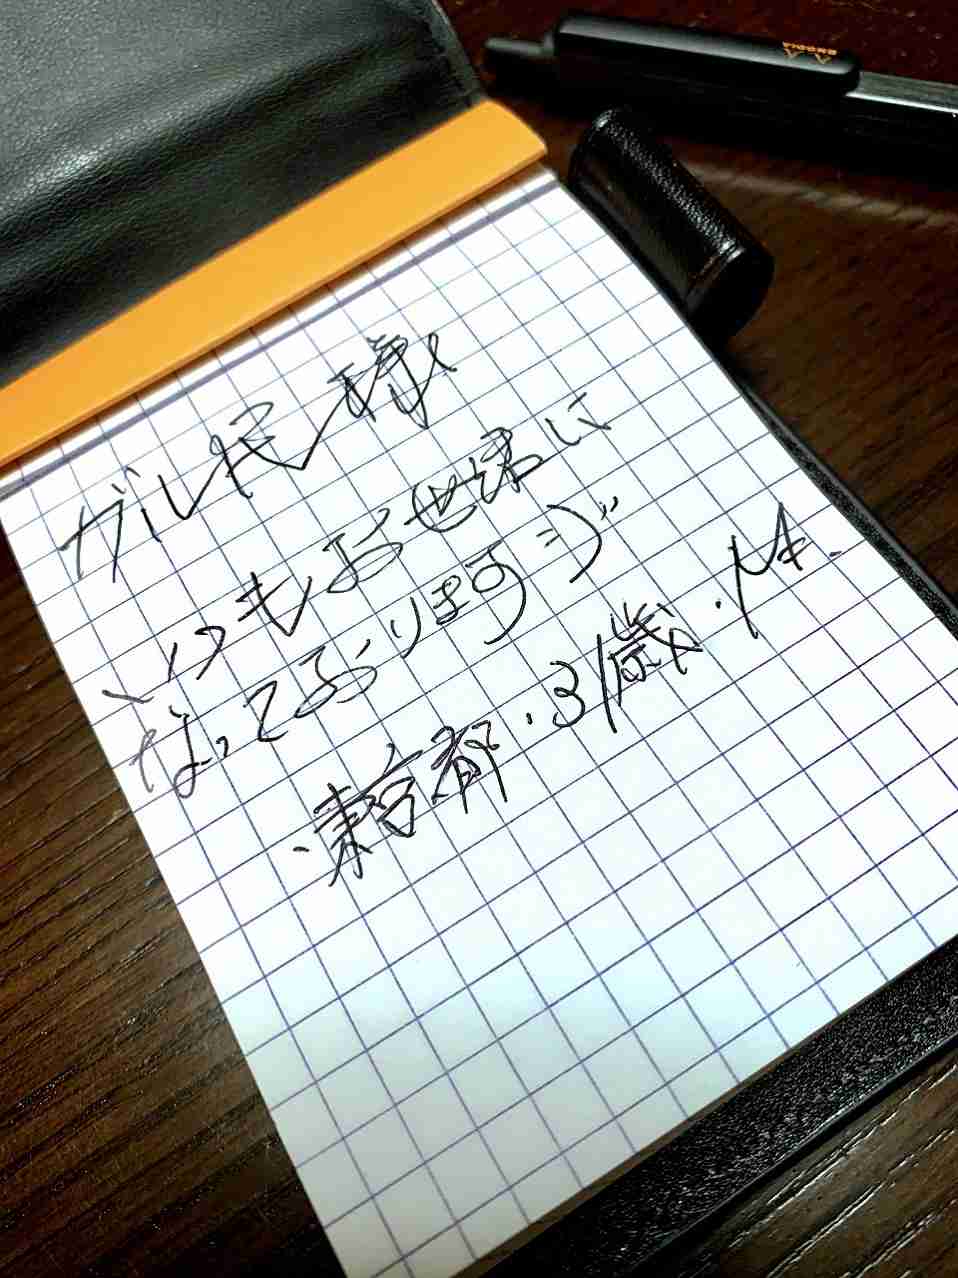 RHODIA
ガレ民様
いつもお世話に
なっております=)"
・東京都・31歳・M.